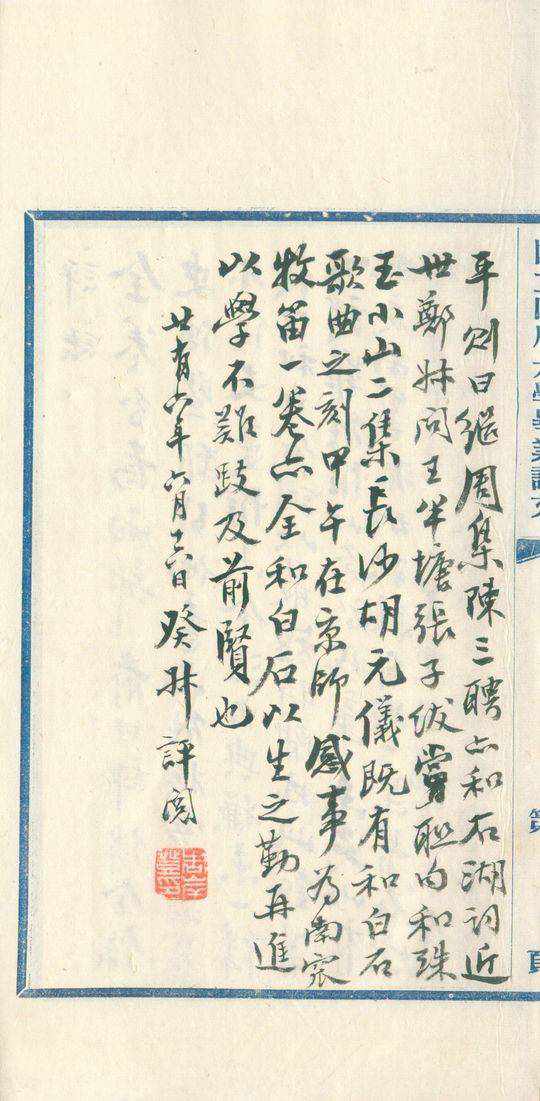 國立四川大學畢業論文
第 頁
平則曰繼周集陳三聘亦和石湖詞近
世鄭叔問王半塘張子苾嘗联句和珠
玉小山二集長沙胡元儀既有和白石
歌曲之刻甲午在京師感事為南宸
牧笛一卷亦全和白石以生之勤再進
以學不難跂及前賢也
廿有六年六月十六日癸叔評閱